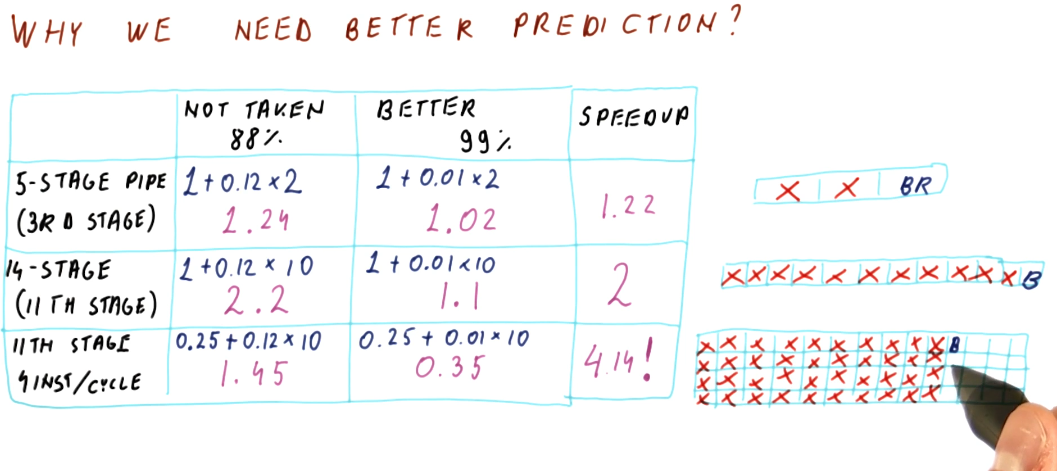 WHY WE NEED BETTER PREDICTION?
NOT TAKEN
88%
BETTER
99%
SPEEDUP
5-STAGE PIPE
(3RD STAGE)
1+0.12×2
1.24
1+0.01×2
1.02
1.22
14-STAGE
(11TH STAGE)
1+0.12×10
2.2
1+0.01×10
1.1
2
11TH STAGE
4INST/CYCLE
0.25+0.12×10
1.45
0.25+0.01×10
0.35
4.14!
X X BR
X X X X X X X X X X X B
X X X X X X X X X X B
X X X X X X X X X X
X X X X X X X X X X
X X X X X X X X X X